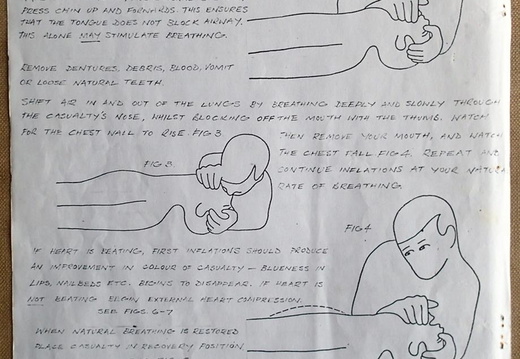 PRESS CHIN UP AND FORWARDS. THIS ENSURES
THAT THE TONGUE DOES NOT BLOCK AIRWAY.
THIS ALONE MAY STIMULATE BREATHING.
REMOVE DENTURES, DEBRIS, BLOOD, VOMIT
OR LOOSE NATURAL TEETH.
SHIFT AIR IN AND OUT OF THE LUNGS BY BREATHING DEEPLY AND SLOWLY THROUGH
THE CASUALTY'S NOSE, WHILST BLOCKING OFF THE MOUTH WITH THE THUMB. WATCH
FOR THE CHEST WALL TO RISE. FIG 3
THEN REMOVE YOUR MOUTH, AND WATCH
THE CHEST FALL FIG 4. REPEAT AND
CONTINUE INFLATIONS AT YOUR NATURA
RATE OF BREATHING.
FIG 3
FIG 4
IF HEART IS BEATING, FIRST INFLATIONS SHOULD PRODUCE
AN IMPROVEMENT IN COLOUR OF CASUALTY — BLUENESS IN
LIPS, NAILBEDS ETC. BEGINS TO DISAPPEAR. IF HEART IS
NOT BEATING BEGIN EXTERNAL HEART COMPRESSION.
SEE FIGS. 6-7
WHEN NATURAL BREATHING IS RESTORED
PLACE CASUALTY IN RECOVERY POSITION